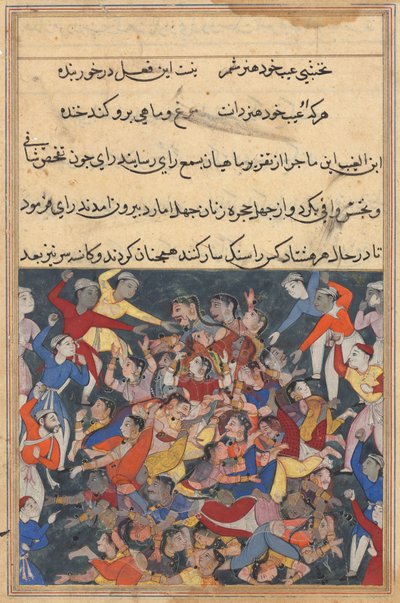 نخشبی عیب خود هنر شمر نیست این فعل در خور بنده
هر که عیب خود هنر دانست مرغ و ماهی برو کند خنده
ابن الغیب این ماجرا از تقریر ماهیان بسمع رای رسانید رای چون تفحص شافی
و تجسس وافی بکرد و از چهل حجره زنان چهل امارد بیرون آمدند رای فرمود
تا در حال هر هشتاد کس را سنگسار کنند همچنان کردند و کامه سر نیز بعد